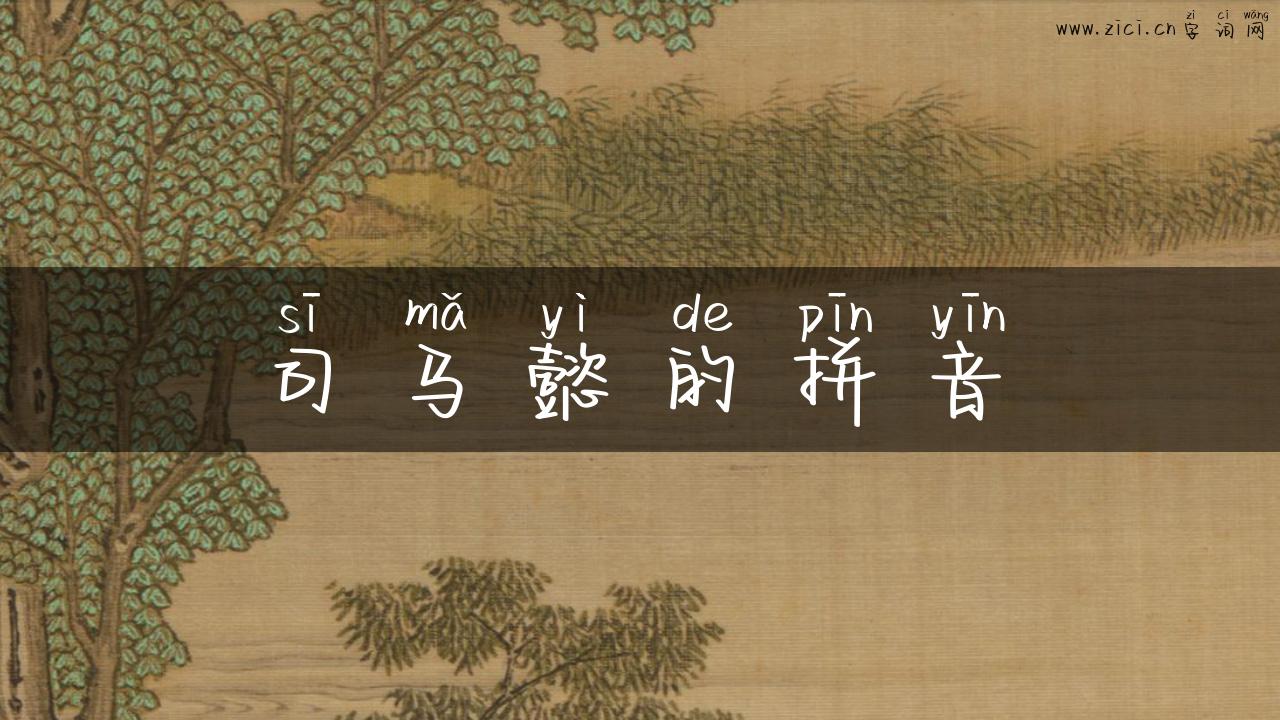 zì cí wǎng
www.zici.cn 字词网
sī mǎ yì de pīn yīn
司马懿的拼音